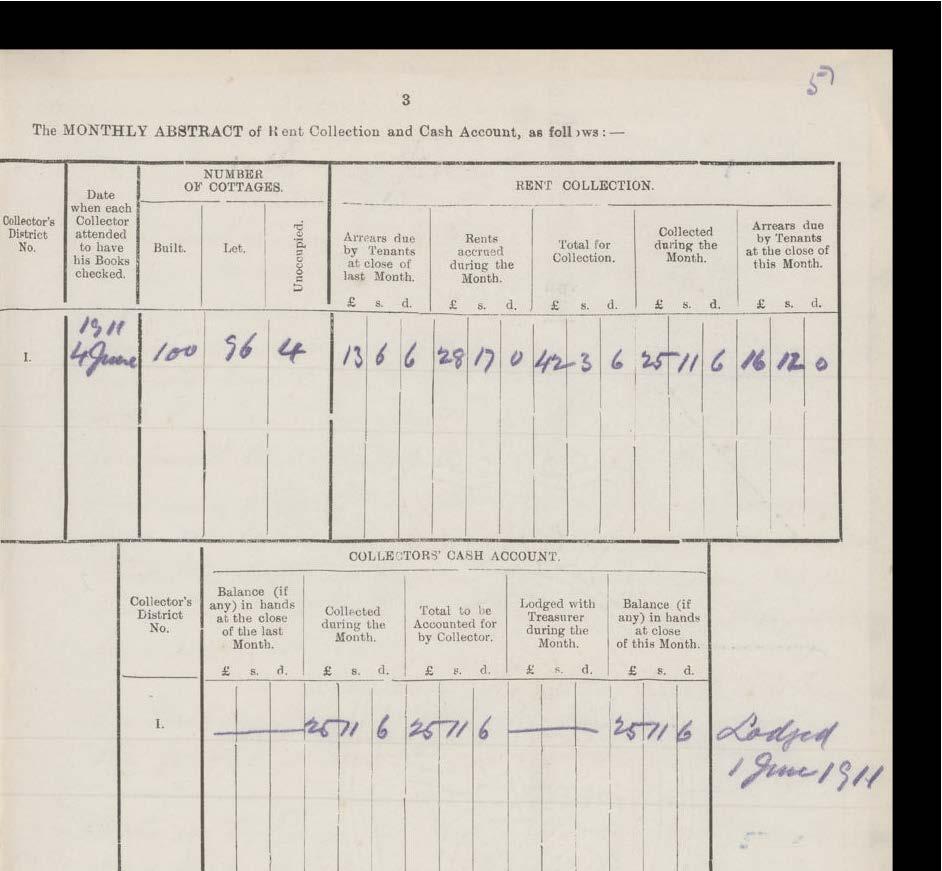 57
3
The MONTHLY ABSTRACT of Rent Collection and Cash Account, as follows:—
NUMBER
OF COTTAGES.
RENT COLLECTION.
Collector's
District
No.
Date
when each
Collector
attended
to have
his Books
checked.
Built.
Let.
Unoccupied.
Arrears due
by Tenants
at close of
last Month.
Rents
accrued
during the
Month.
Total for
Collection.
Collected
during the
Month.
Arrears due
by Tenants
at the close of
this Month.
£ s. d. £ s. d. £ s. d. £ s. d. £ s. d.
1911
I. 4 June 100 96 4 13 6 6 28 17 0 42 3 6 25 11 6 16 12 0
COLLECTORS' CASH ACCOUNT.
Collector's
District
No.
Balance (if
any) in hands
at the close
of the last
Month.
Collected
during the
Month.
Total to be
Accounted for
by Collector.
Lodged with
Treasurer
during the
Month.
Balance (if
any) in hands
at close
of this Month.
£ s. d. £ s. d. £ s. d. £ s. d. £ s. d.
I. — 25 11 6 25 11 6 — 25 11 6 Lodged
1 June 1911